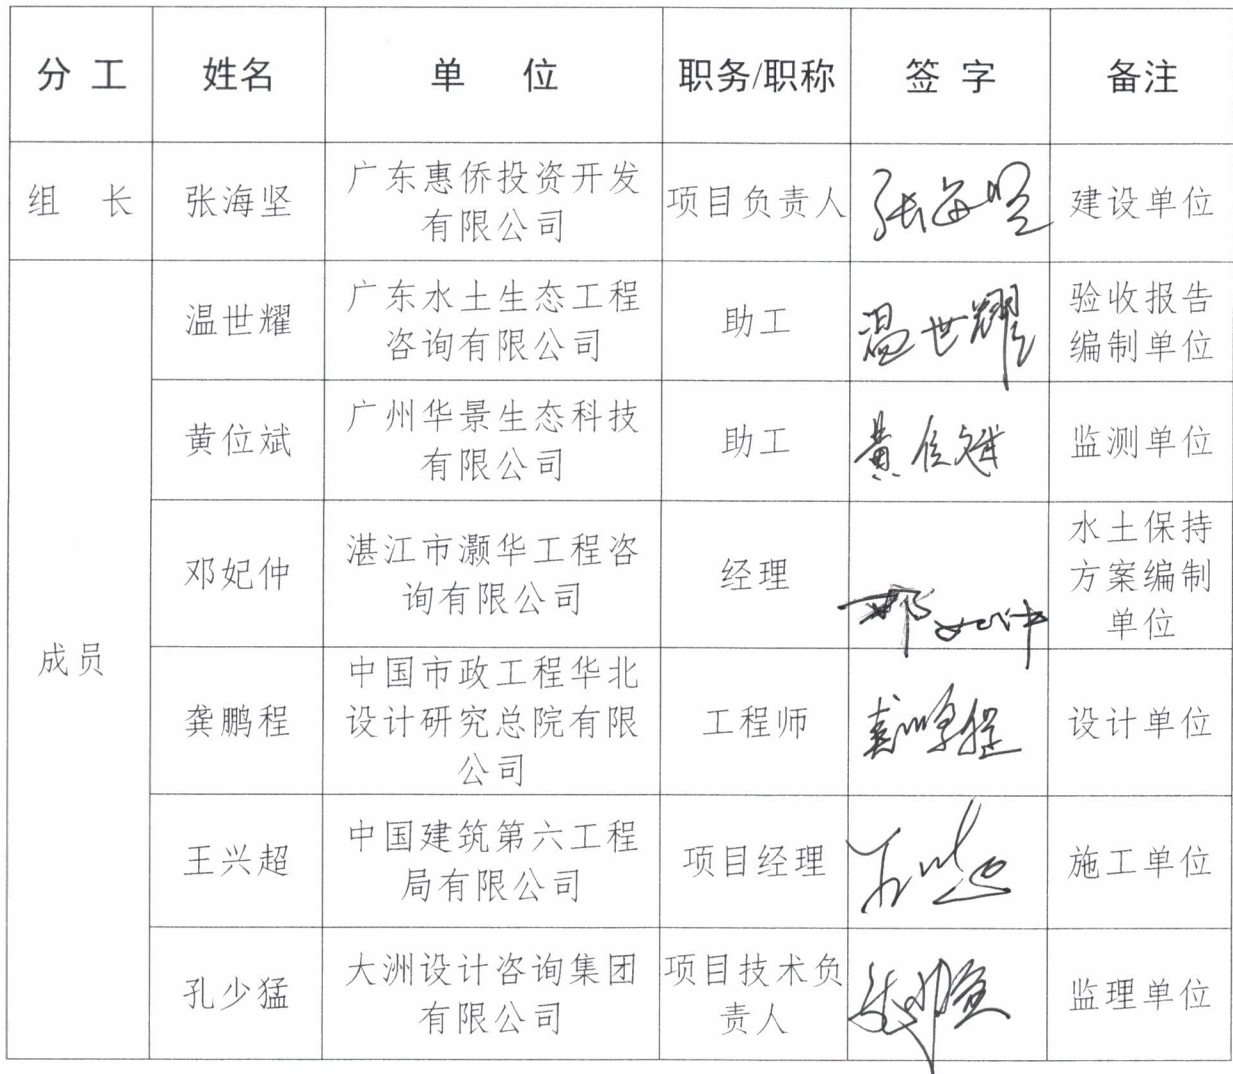 分 工 姓名 单 位 职务/职称 签 字 备注
组 长 张海坚 广东惠侨投资开发有限公司 项目负责人 张海坚 建设单位
成员
温世耀 广东水土生态工程咨询有限公司 助工 温世耀 验收报告编制单位
黄位斌 广州华景生态科技有限公司 助工 黄位斌 监测单位
邓妃仲 湛江市灏华工程咨询有限公司 经理 邓妃仲 水土保持方案编制单位
龚鹏程 中国市政工程华北设计研究总院有限公司 工程师 龚鹏程 设计单位
王兴超 中国建筑第六工程局有限公司 项目经理 王兴超 施工单位
孔少猛 大洲设计咨询集团有限公司 项目技术负责人 监理单位